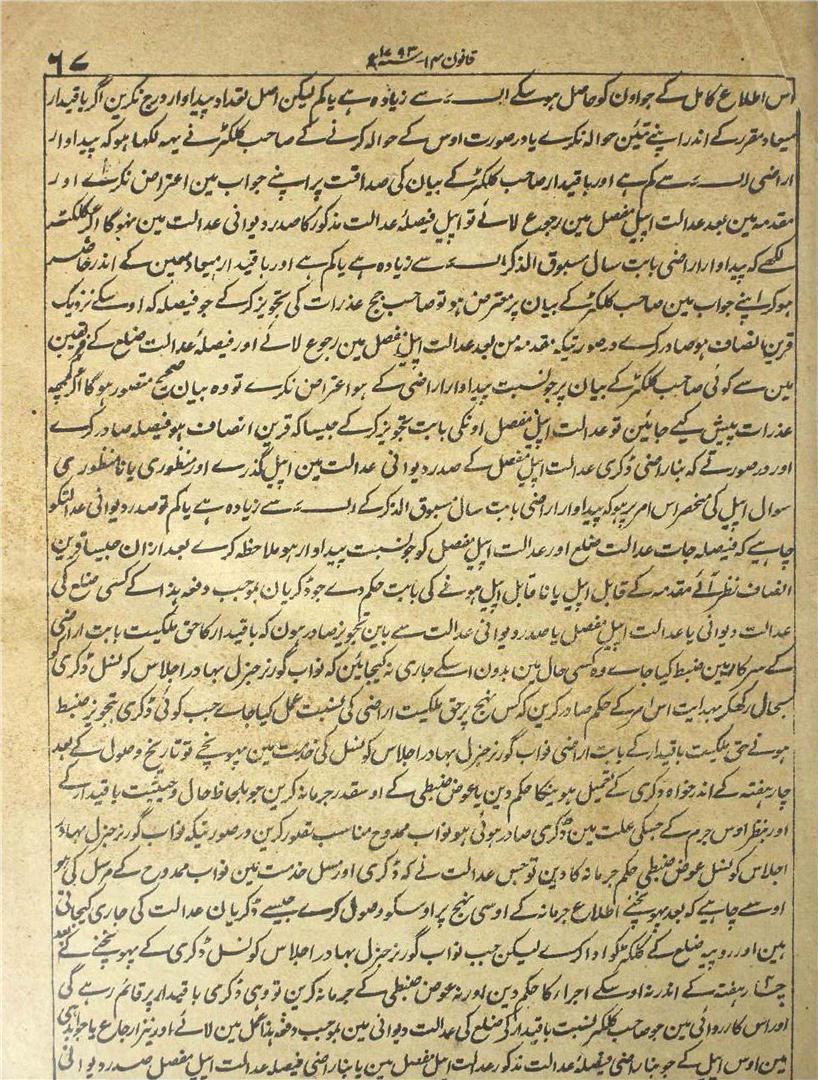 قانون ۱۴ سنہ ۱۷۹۳ء
۶۷
اس اطلاع کامل کے جو اون کو حاصل ہو سکے سے زیادہ ہے یا کم لیکن اصل تعداد پیداوار درج نکرین اگر باقیدار
میعاد مقرر کے اندر اپنے تئین حوالہ نکرے یا درصورت اوس کے حوالہ کرنے کے صاحب کلکٹر نے یہہ لکھا ہو کہ پیداوار
اراضی سے کم ہے اور باقیدار صاحب کلکٹر کے بیان کی صداقت پر اپنے جواب مین اعتراض نکرے اور
مقدمہ مین بعد عدالت اپیل مفصل مین رجوع لائے تو اپیل فیصلۂ عدالت مذکور کا صدر دیوانی عدالت مین نہوگا اگر کلکٹر
لکھے کہ پیداوار اراضی بابت سال مسبوق الذکر سے زیادہ ہے یا کم ہے اور باقیدار میعاد معین کے اندر حاضر
ہو کر اپنے جواب مین صاحب کلکٹر کے بیان پر معترض ہو تو صاحب جج عذرات کی تجویز کر کے جو فیصلہ کہ اوسکے نزدیک
قرین انصاف ہو صادر کرے درصورتیکہ مقدمہ من بعد عدالت اپیل مفصل مین رجوع لائے اور فیصلۂ عدالت ضلع کے فریقین
مین سے کوئی صاحب کلکٹر کے بیان پر جو نسبت پیداوار اراضی کے ہو اعتراض نکرے تو وہ بیان صحیح متصور ہوگا اگر کچھہ
عذرات پیش کیے جائین تو عدالت اپیل مفصل اونکی بابت تجویز کر کے جیسا کہ قرین انصاف ہو فیصلہ صادر کرے
اور درصورتے کہ بناراضی ڈکری عدالت اپیل مفصل کے صدر دیوانی عدالت مین اپیل گذرے اور منظوری یا نامنظوری
سوال اپیل کی منحصر اس امر پر ہو کہ پیداوار اراضی بابت سال مسبوق الذکر کے سے زیادہ ہے یا کم تو صدر دیوانی عدالتکو
چاہیے کہ فیصلہ جات عدالت ضلع اور عدالت اپیل مفصل کو جو نسبت پیداوار ہو ملاحظہ کرے بعد ازان جیسا قرین
انصاف نظر آئے مقدمہ کے قابل اپیل یا نا قابل اپیل ہونے کی بابت حکم دے جو ڈکریان بموجب دفعہ ہذا کے کسی ضلع کی
عدالت دیوانی یا عدالت اپیل مفصل یا صدر دیوانی عدالت سے باین تجویز صادر ہون کہ باقیدار کا حق ملکیت بابت اراضی
کے سرکار مین ضبط کیا جاے وہ کسی حال مین بدون اسکے جاری نہ کیجائین کہ نواب گورنر جنرل بہادر اجلاس کونسل ڈکری کو
بحال رکھکر بہدایت اس امر کے حکم صادر کرین کہ کس نہج پر حق ملکیت اراضی کی نسبت عمل کیا جاے جب کوئی ڈکری تجویز ضبط
ہونے حق ملکیت باقیدار کے بابت اراضی نواب گورنر جنرل بہادر اجلاس کونسل کی خدمت مین پہونچے تو تاریخ وصول کے بعد
چار ہفتہ کے اندر خواہ ڈکری کے تعمیل ہونیکا حکم دین یا عوض ضبطی کے اوسقدر جرمانہ کرین جو بلحاظ حال و حیثیت باقیدار کے
اور بنظر اوس جرم کے جسکی علت مین ڈکری صادر ہوئی ہو نواب ممدوح مناسب تصور کرین درصورتیکہ نواب گورنر جنرل بہادر
اجلاس کونسل عوض ضبطی حکم جرمانہ کا دین تو جس عدالت نے کہ ڈکری اور مسل خدمت مین نواب ممدوح کے مرسل کی ہو
اوسے چاہیے کہ بعد پہونچنے اطلاع جرمانہ کے اوسی نہج پر اوسکو وصول کرے جیسے ڈکریان عدالت کی جاری کیجاتی
ہین اور روپیہ ضلع کے کلکٹر کو ادا کرے لیکن جب نواب گورنر جنرل بہادر اجلاس کونسل ڈکری کے پہونچنے کے بعد
چار ہفتہ کے اندر نہ اوسکے اجراء کا حکم دین اور نہ عوض ضبطی کے جرمانہ کرین تو وہی ڈکری باقیدار پر قائم رہے گی
اور اس کارروائی مین جو صاحب کلکٹر نسبت باقیدار کی ضلع کی عدالت دیوانی مین بموجب دفعہ ہذا عمل مین لائے اور نیز ارجاع یا جوابدہی
مین اوس اپیل کے جو بناراضی فیصلۂ عدالت مذکور عدالت اپیل مفصل مین یا بناراضی فیصلہ عدالت اپیل مفصل صدر دیوانی